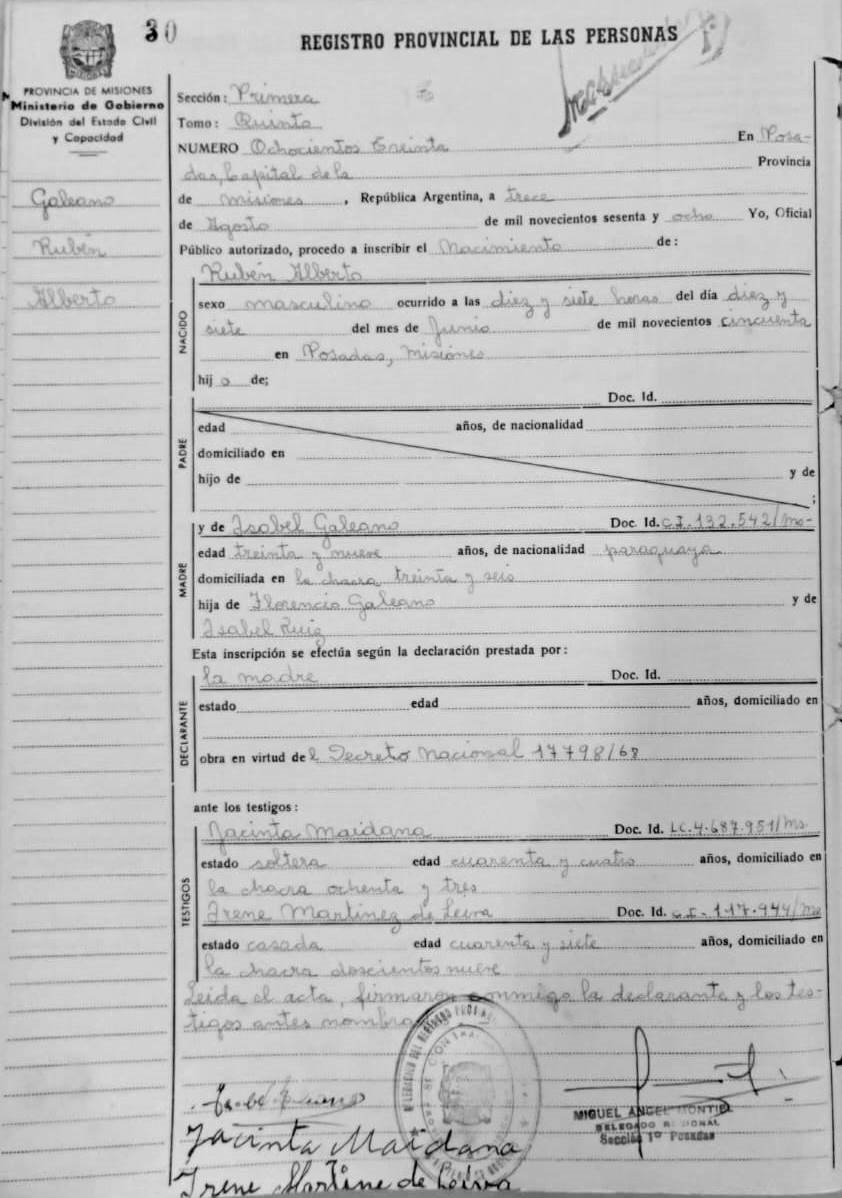 30
REGISTRO PROVINCIAL DE LAS PERSONAS
PROVINCIA DE MISIONES
Ministerio de Gobierno
División del Estado Civil
y Capacidad
Galeano
Rubén
Alberto
Sección: Primera
Tomo: Quinto
NUMERO Ochocientos Treinta En Posa-
das, Capital de la Provincia
de Misiones, República Argentina, a trece
de Agosto de mil novecientos sesenta y ocho Yo, Oficial
Público autorizado, procedo a inscribir el Nacimiento de:
Rubén Alberto
NACIDO
sexo masculino ocurrido a las diez y siete horas del día diez y
siete del mes de Junio de mil novecientos cincuenta
en Posadas, Misiones
hijo de;
Doc. Id.
PADRE
edad años, de nacionalidad
domiciliado en
hijo de y de
;
MADRE
y de Isabel Galeano Doc. Id. C.I. 132.542/Ms-
edad treinta y nueve años, de nacionalidad paraguaya
domiciliada en la chacra treinta y seis
hija de Florencio Galeano y de
Isabel Ruiz
Esta inscripción se efectúa según la declaración prestada por:
la madre Doc. Id.
DECLARANTE
estado edad años, domiciliado en
obra en virtud del Decreto Nacional 17798/68
ante los testigos:
TESTIGOS
Jacinta Maidana Doc. Id. LC.4.687.951/Ms
estado soltera edad cuarenta y cuatro años, domiciliado en
la chacra ochenta y tres
Irene Martinez de Leiva Doc. Id. C.I- 117.944/Ms
estado casada edad cuarenta y siete años, domiciliado en
la chacra doscientos nueve
Leida el acta, firmaron conmigo la declarante y los tes-
tigos antes nombra
MIGUEL ANGEL MONTIEL
DELEGADO REGIONAL
Sección 1º Posadas
Jacinta Maidana
Irene Martine de Leiva